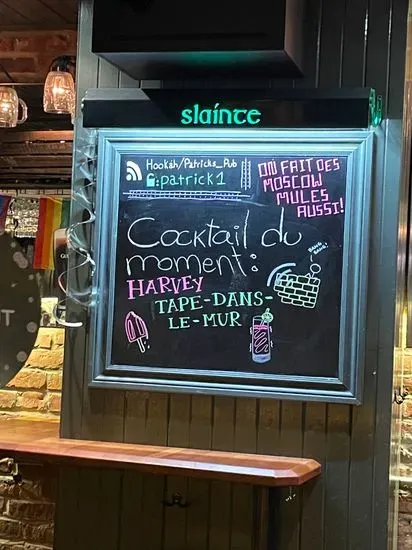 slaínte
Hookah/Patricks_Pub
:patrick1
ON FAIT DES
MOSCOW
MULES
AUSSI!
Cocktail du
moment:
HARVEY
TAPE-DANS-
LE-MUR
BANG
BANG!